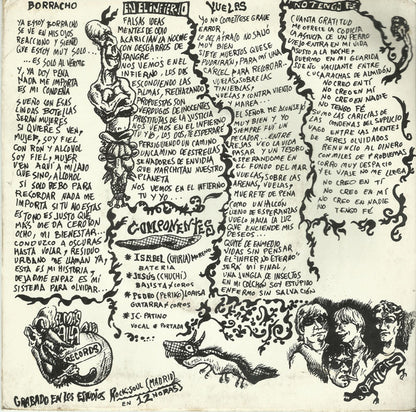 BORRACHO
YA ESTOY BORRACHO
SE VE EN MIS OJOS
REACCIONO Y SIENTO
QUE ESTOY MUY SOLO...
... ES SOLO AL VERME
Y, YA DOY PENA
NADA ME IMPORTA
ES MI CONDENA
SUEÑO QUE ESAS
LINDAS BOTELLAS
SERAN MUJERES
SI QUIERES VEN,
MUJER, SOY FIEL
CON RON Y ALCOHOL
SOY FIEL; MUJER
VEN AQUI A MI LADO
QUE SINO, ALCOHOL
SI SOLO BEBO PARA
RECORDAR NADA ME
IMPORTA SI TU NO ESTAS
ES TONO ES JUSTO QUE
MAS ME DA CERO UN
OCHO, MI BIENESTAR...
CONDUZCO A OSCURAS
HASTA VOLAR, RESIDUO
URBANO ME LLAMAN YA,
ESTA ES MI HISTORIA Y
DEJADME EN PAZ ES MI
SISTEMA PARA OLVIDAR...
EN EL INFIERNO
FALSAS IDEAS
MENTES DE ODIO
ACARICIAN LA NOCHE
CON DESGARROS DE
SANGRE.
NOS VEMOS EN EL
INFIERNO, LOS DOS
DESCONDIENDO LAS
ALMAS, RECHAZANDO
PROPUESTAS SON
VERDUGOS DE INOCENTES
PROSTITUTAS DE LA JUSTICIA
NOS VEMOS EN EL INFIERNO
TU Y YO, LOS DOS, TE ESPERARE
PERSIGUIENDO UN CAMINO
UN CAMINO DE ESTRELLAS
SEÑADORES DE ENVIDIA
QUE MARCHITAN NUESTRO
PLANETA
NOS VEMOS EN EL INFIERNO
TU Y YO...
COMPONENTES
* ISABEL (CHIRLA) MORENO
BATERIA
* JESUS (CHUCHI)
BAJISTA Y COROS
* PEDRO (PERIKO) LORISA
GUITARRA Y COROS
* JC. PATINO
VOCAL & PORTADA
VUELAS
YO NO COMETI ESE GRAVE
ERROR
LO DEL AFGANO NO SALIO
MUY BIEN
SIETE MUERTOS QUE SE
PUDRIRAN, Y PARA MI UNA
CARCEL PARA RECORDAR...
VUELAS, SOBRE LAS
TINIEBLAS,
VUELAS CONTRA VIENTO Y
MAREA...
EL SEÑOR ME ACONSEJO
MUY BIEN Y YO
SIEMPRE FUI UN
PECADOR, ENTRE
REJAS VEO LA VIDA
PASAR Y UN TESORO
ESPERANDOME EN
EL FONDO DEL MAR
VUELAS, SOBRE LAS
ARENAS, VUELAS,
MUERETE DE PENA
COMO UN HALCON
LLENO DE ESPERANZAS
VUELO HACIA LA LUZ
QUE ENCIENDE MIS
DESEOS...
QUITE DE EN MEDIO
VIDAS SIN PENSAR
EL "INFIERNO ETERNO"
SERA MI FINAL,
UNA JUNGLA DE INSECTOS
EN MI COLCHON SOY ESTUPIDO
ENFERMO SIN SALVACION
NO TENGO FE
CUANTA GRATITUD
ME OFRECE LA CODICIA
LA AGUJA DE UN FIERRO
VIEJO ENTRA EN MI VIDA
ASUSTO A LA NOCHE
DUERMO EN MI GUARIDA
SUEÑO MUTANTE ENTRE
CUCARACHAS DE ALMIDON
NO CREO EN TI
NO CREO EN MI
NO CREO EN NADA
NO TENGO FE
SON COMO LAS CARICIAS DE
LAS CADENAS DEL SUPLICIO
VAGO ENTRE LAS MENTES
DE SERES OLVIDADOS
RENUNCIO AL DINERO
CON MILES DE PROBLEMAS
MUERO MUY DESPACIO
Y EL VIAJE NO ME LLEGA
NO CREO EN TI
NO CREO EN MI
NO CREO EN NADA
NO TENGO FE
RECORDS
GRABADO EN LOS ESTUDIOS ROCK-SOUL (MADRID)
EN 12 HORAS